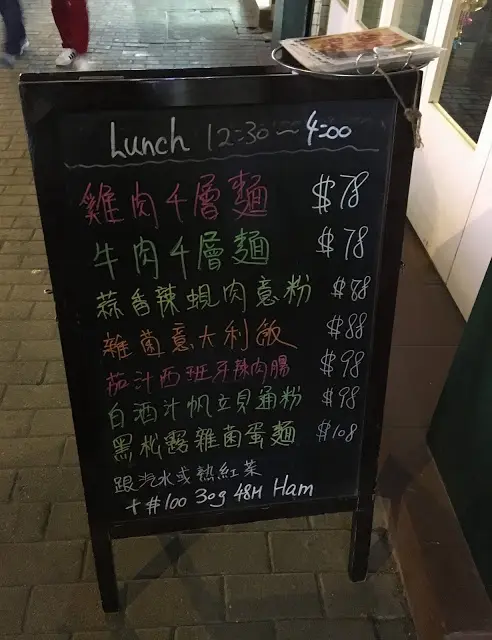 Lunch 12:30~4:00
雞肉千層麵 $78
牛肉千層麵 $78
蒜香辣蜆肉意粉 $88
雜菌意大利飯 $88
茄汁西班牙辣肉腸 $98
白酒汁帆立貝通粉 $98
黑松露雜菌蛋麵 $108
跟汽水或熱紅茶
+#100 30g 48M Ham